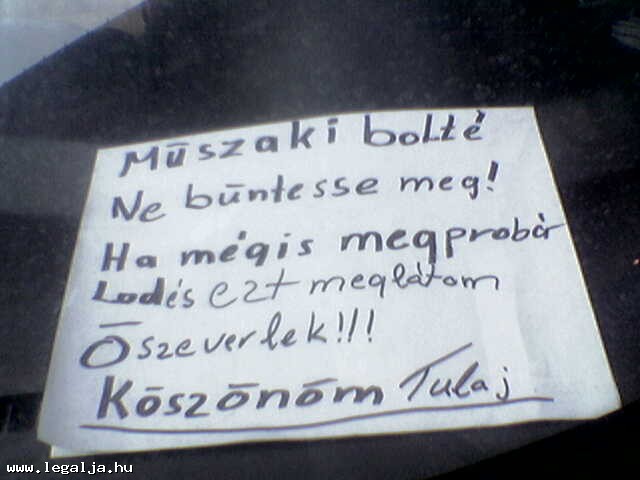 Műszaki bolté
Ne būntesse meg!
Ha mégis megprobár
Lodés ezt meglátom
Ōszeverlek!!!
Kōszōnōm Tulaj
www.legalja.hu